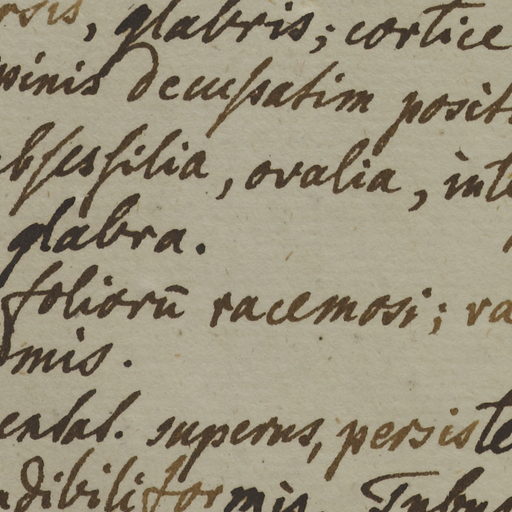 rsis, glabris; cortice
spinis decussatim posit
bsessilia, ovalia, int
glabra.
foliorū racemosi; va
mis.
superus, persiste
ndibiliformis. Tubus